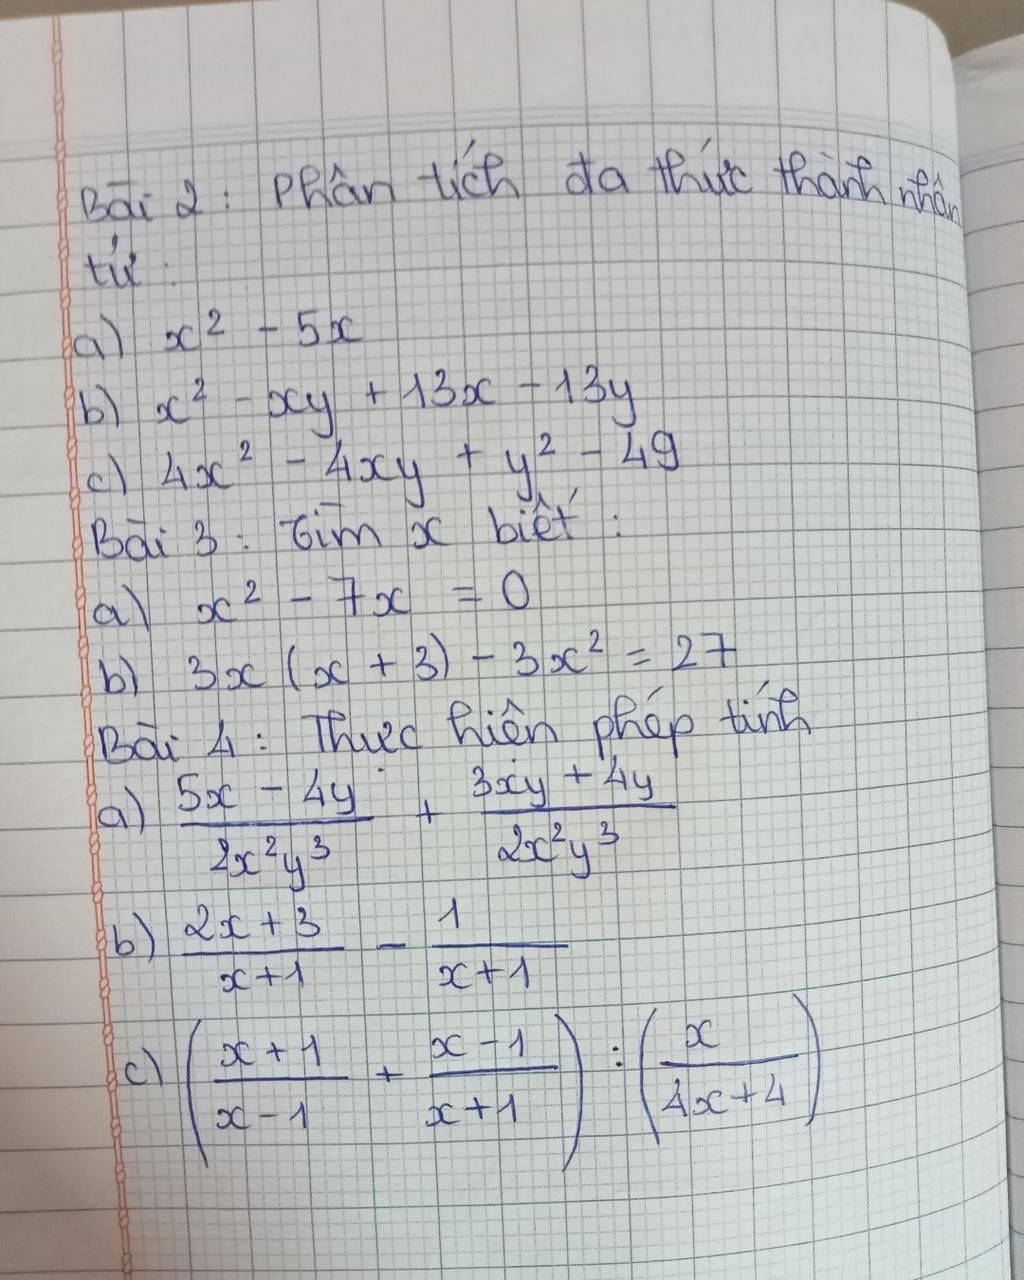 Bài 2: Phân tích đa thức thành nhân
tử:
a) x² - 5x
b) x² - xy + 13x - 13y
c) 4x² - 4xy + y² - 49
Bài 3: Tìm x biết:
a) x² - 7x = 0
b) 3x (x + 3) - 3x² = 27
Bài 4: Thực hiện phép tính
a) (5x - 4y)/(2x²y³) + (3xy + 4y)/(2x²y³)
b) (2x + 3)/(x + 1) - 1/(x + 1)
c) ((x + 1)/(x - 1) + (x - 1)/(x + 1)) : (x/(4x + 4))